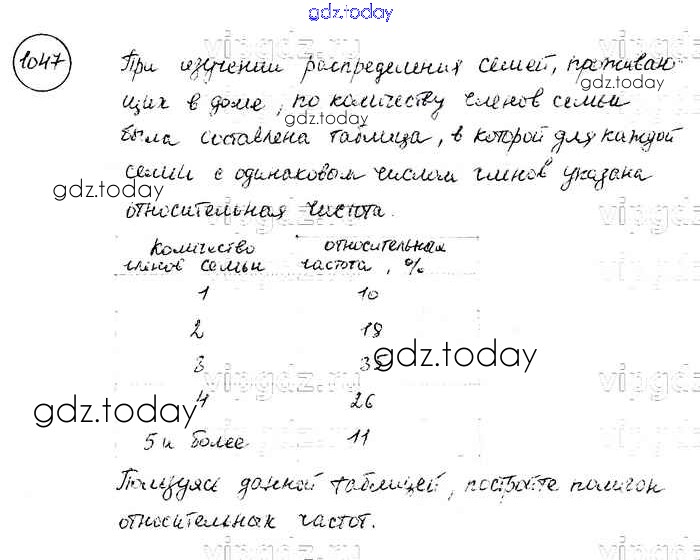 gdz.today
1047
При изучении распределения семей, проживаю-
gdz.today
щих в доме, по количеству членов семьи
gdz.today
была составлена таблица, в которой для каждой
семьи с одинаковым числом членов указана
gdz.today
относительная частота.
vipgdz.ru
Количество относительная
членов семьи частота, %
1 10
2 18
3
gdz.today
4 26
gdz.today
5 и более 11
Пользуясь данной таблицей, постройте полигон
относительных частот.